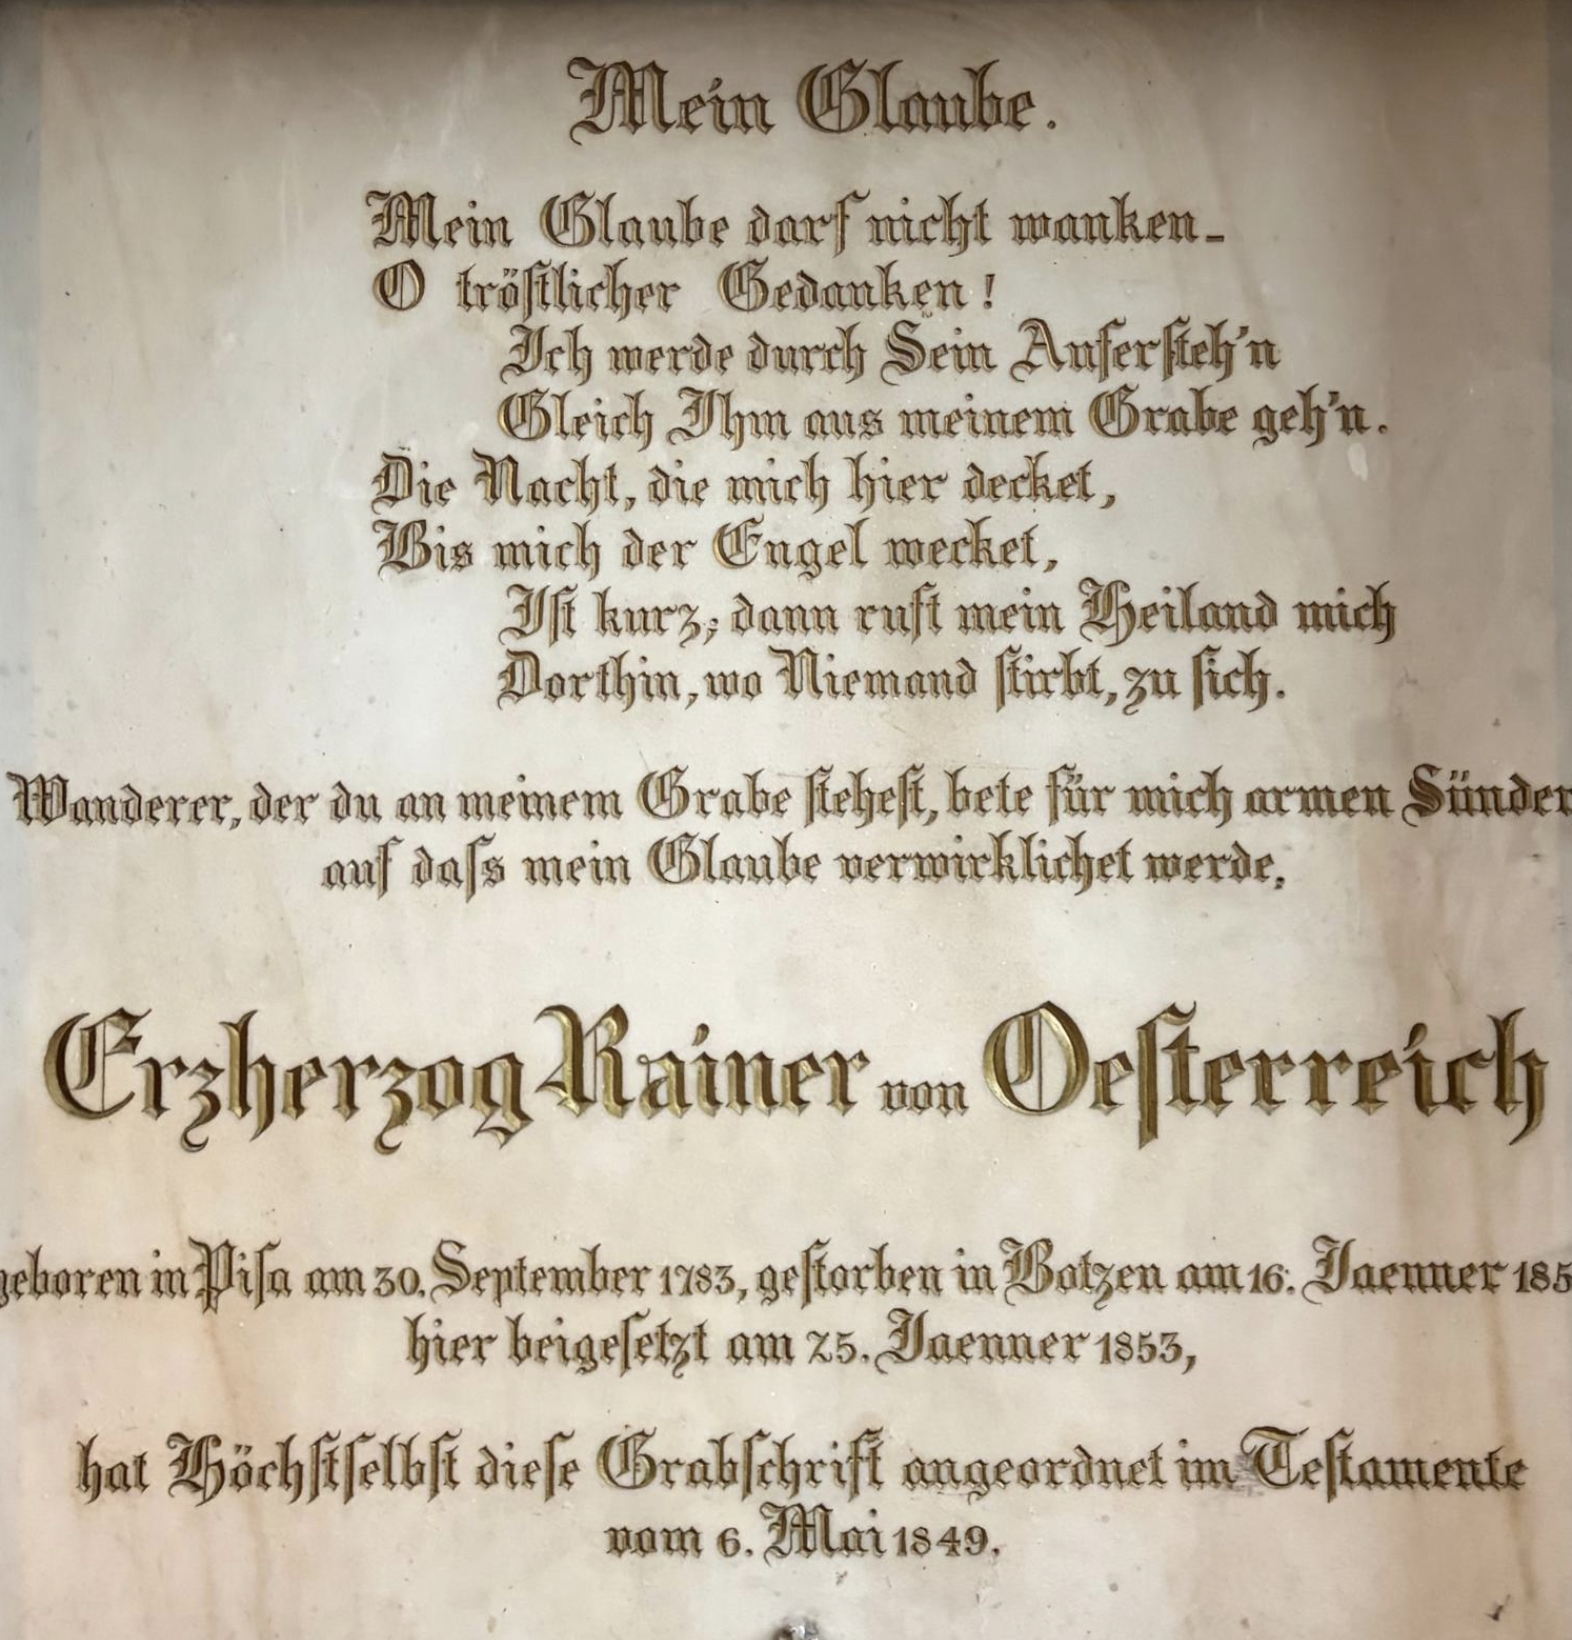 Mein Glaube.
Mein Glaube darf nicht wanken–
O tröstlicher Gedanken!
Ich werde durch Sein Aufersteh'n
Gleich Ihm aus meinem Grabe geh'n.
Die Nacht, die mich hier decket,
Bis mich der Engel wecket,
Ist kurz; dann ruft mein Heiland mich
Dorthin, wo Niemand stirbt, zu sich.
Wanderer, der du an meinem Grabe stehest, bete für mich armen Sünder
auf dass mein Glaube verwirklichet werde.
Erzherzog Rainer von Oesterreich
geboren in Pisa am 30. September 1783, gestorben in Botzen am 16. Jaenner 185
hier beigesetzt am 25. Jaenner 1853,
hat Höchstselbst diese Grabschrift angeordnet im Testamente
vom 6. Mai 1849.